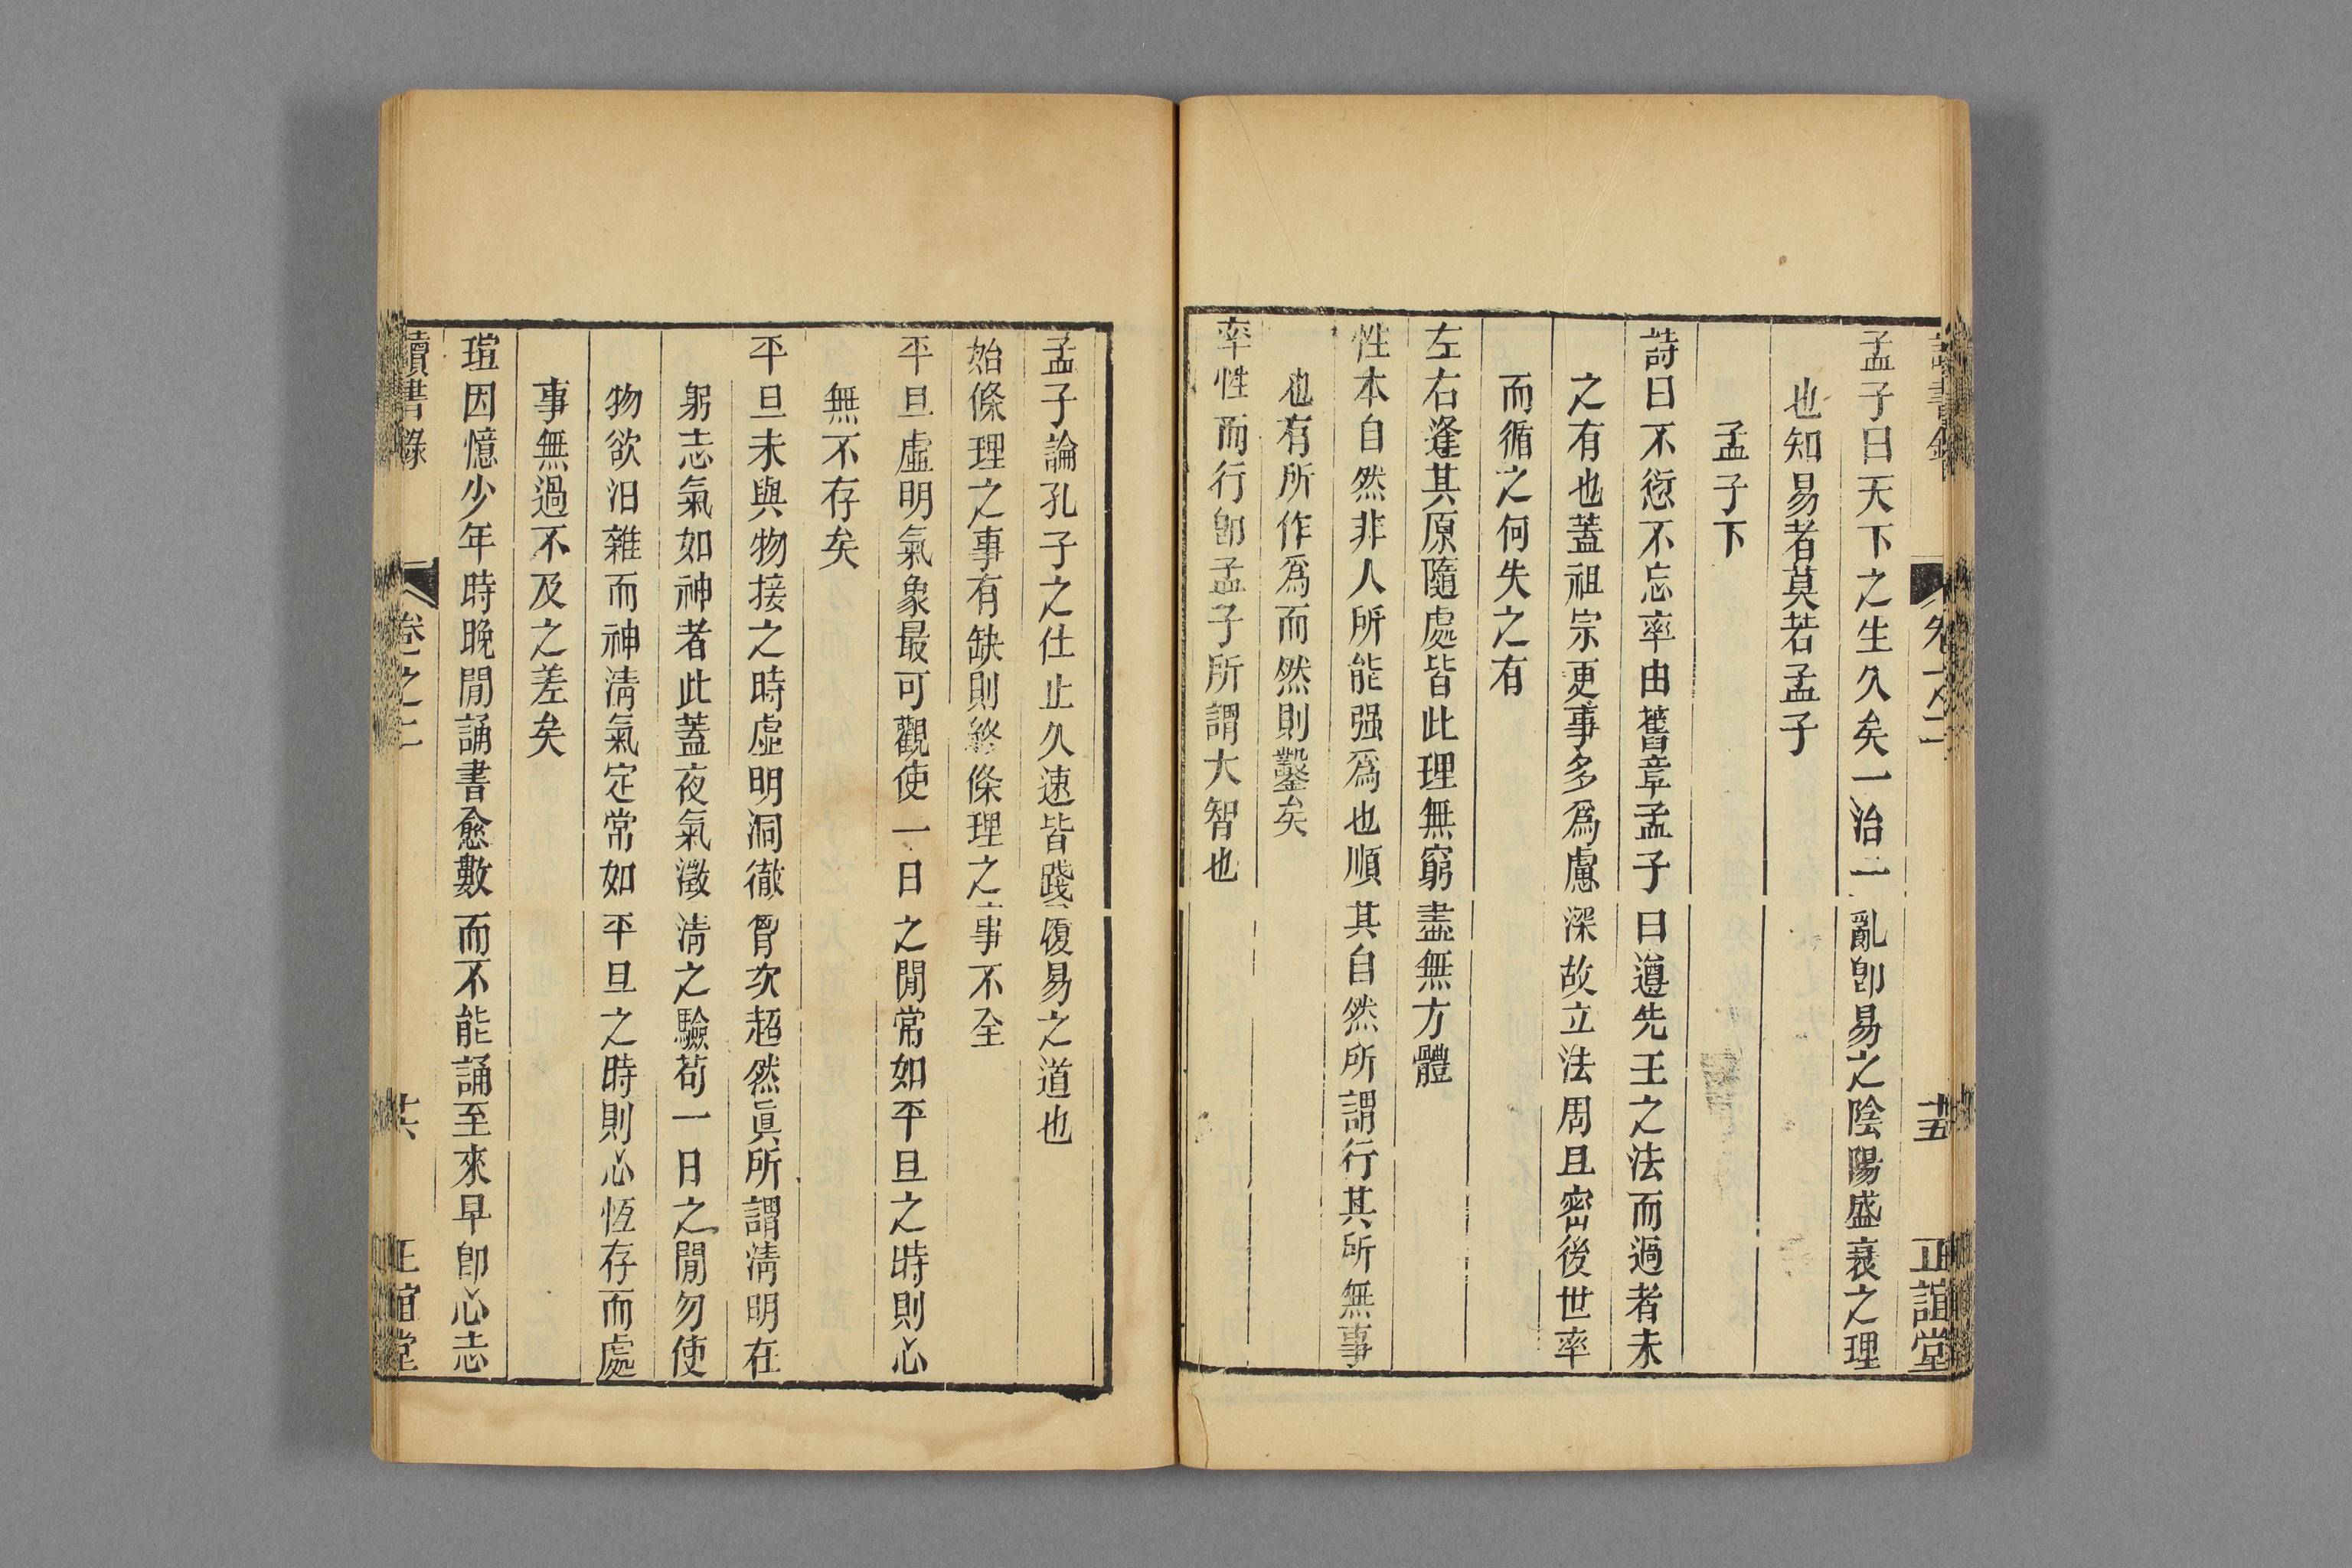 讀書錄 卷之二 十五 正誼堂
孟子曰天下之生久矣一治一亂卽易之陰陽盛衰之理
也知易者莫若孟子
孟子下
詩曰不愆不忘率由舊章孟子曰遵先王之法而過者未
之有也蓋祖宗更事多爲慮深故立法周且密後世率
而循之何失之有
左右逢其原隨處皆此理無窮盡無方體
性本自然非人所能强爲也順其自然所謂行其所無事
也有所作爲而然則鑿矣
率性而行卽孟子所謂大智也
孟子論孔子之仕止久速皆踐履易之道也
始條理之事有缺則終條理之事不全
平旦虛明氣象最可觀使一日之閒常如平旦之時則心
無不存矣
平旦未與物接之時虛明洞徹胷次超然眞所謂淸明在
躬志氣如神者此蓋夜氣澂淸之驗苟一日之閒勿使
物欲汨雜而神淸氣定常如平旦之時則心恆存而處
事無過不及之差矣
瑄因憶少年時晚閒誦書愈數而不能誦至來早卽心志
讀書錄 卷之二 十六 正誼堂